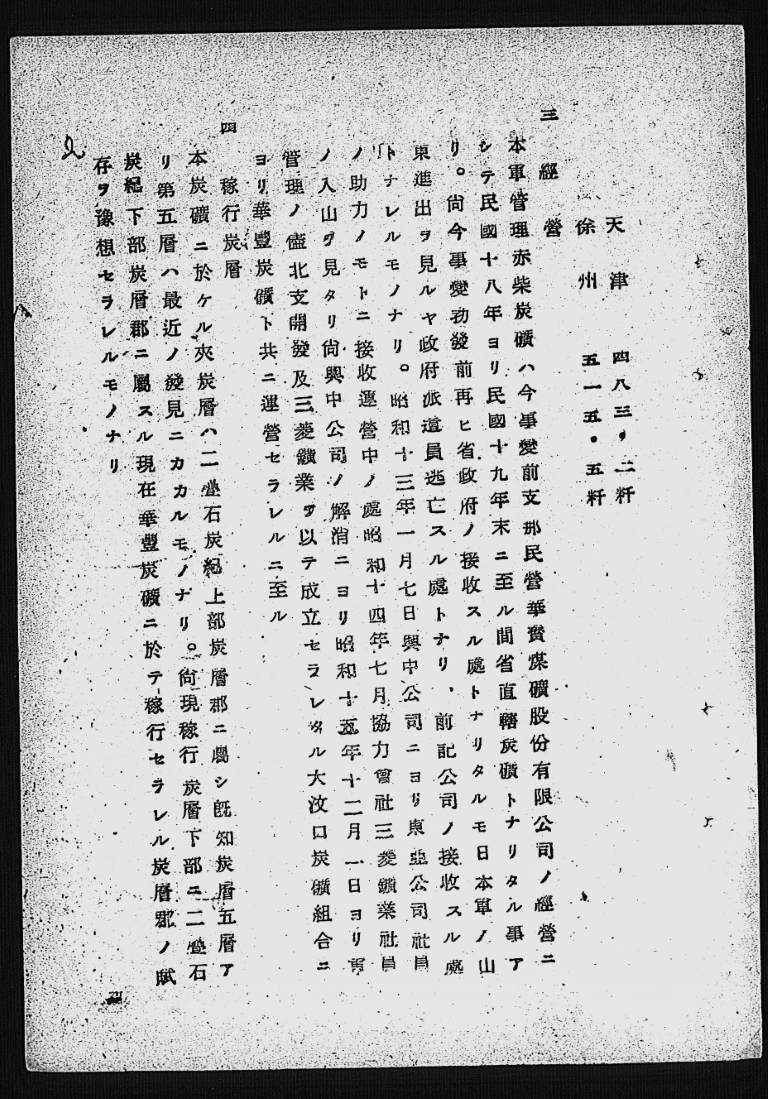 天津　四八三・二粁
徐州　五一五・五粁
三　經營
本軍管理赤柴炭礦ハ今事變前支那民營華寳煤礦股份有限公司ノ經營ニ
シテ民國十八年ヨリ民國十九年末ニ至ル間省直轄炭礦トナリタル事ア
リ。尚今事變勃發前再ヒ省政府ノ接收スル處トナリタルモ日本軍ノ山
東進出ヲ見ルヤ政府派遣員逃亡スル處トナリ、前記公司ノ接收スル處
トナレルモノナリ。昭和十三年一月七日興中公司ニヨリ東亞公司社員
ノ助力ノモトニ接收運營中ノ處昭和十四年七月協力會社三菱鑛業社員
ノ入山ヲ見タリ尚興中公司ノ解消ニヨリ昭和十五年十二月一日ヨリ軍
管理ノ儘北支開發及三菱鑛業ヲ以テ成立セラレタル大汶口炭礦組合ニ
ヨリ華豐炭礦ト共ニ運營セラレルニ至ル
四　稼行炭層
本炭礦ニ於ケル夾炭層ハ二疊石炭紀上部炭層郡ニ屬シ既知炭層五層ア
リ第五層ハ最近ノ發見ニカカルモノナリ。尚現稼行炭層下部ニ二疊石
炭紀下部炭層郡ニ屬スル現在華豐炭礦ニ於テ稼行セラレル炭層郡ノ賦
存ヲ豫想セラレルモノナリ
2